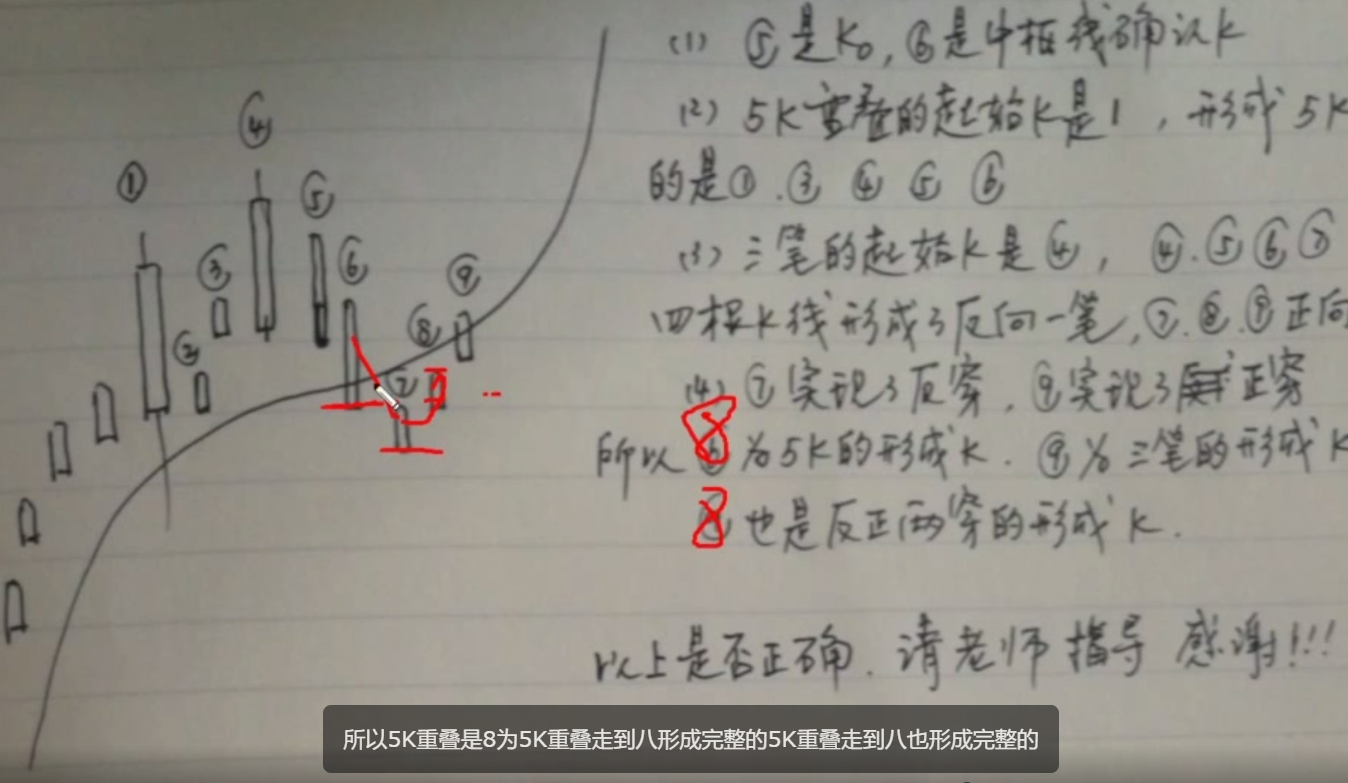 (1) ⑤是K0,⑥是中枢线确认K
(2) 5K重叠的起始K是1,形成5K
的是①.③ ④ ⑤ ⑥
(3) 三笔的起始K是④, ④.⑤⑥⑦
四根K线形成了反向一笔,⑦.⑧.⑨正向
(4) ⑦实现了反穿,⑨实现了正穿
所以 8 为5K的形成K.⑨为三笔的形成K
也是反正两穿的形成K.
以上是否正确.请老师指导 感谢!!!
①
②
③
④
⑤
⑥
⑦
⑧
⑨
所以5K重叠是8为5K重叠走到八形成完整的5K重叠走到八也形成完整的